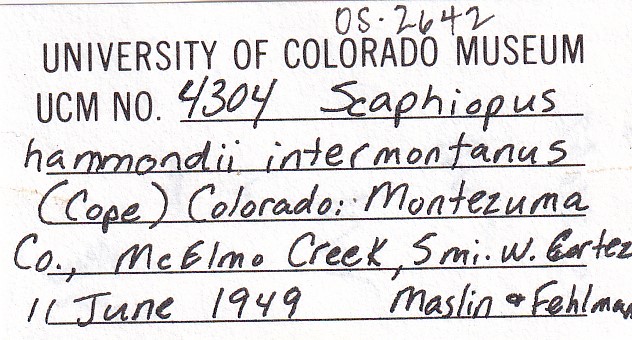 OS·2642
UNIVERSITY OF COLORADO MUSEUM
UCM NO. 4304 Scaphiopus
hammondii intermontanus
(Cope) Colorado: Montezuma
Co., McElmo Creek, 5 mi. W. Cortez
11 June 1949 Maslin & Fehlman